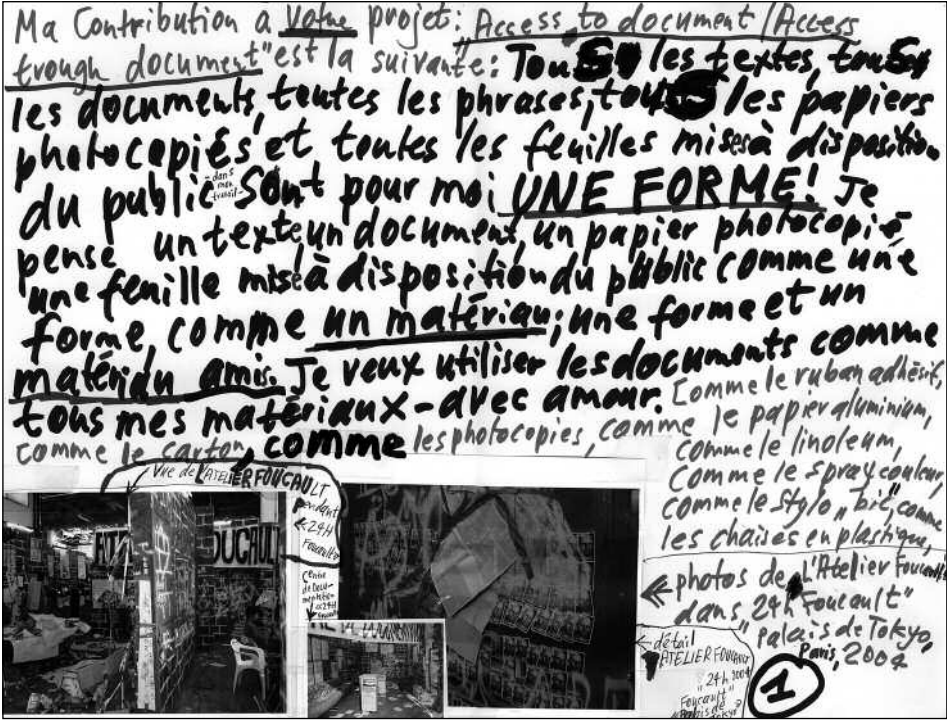 Ma Contribution à Votre projet: „Access to document/Access
trough document" est la suivante: Tous les textes, tous
les documents, toutes les phrases, tous les papiers
photocopiés et toutes les feuilles mises à disposition
du public - dans mon travail - sont pour moi UNE FORME! Je
pense un texte, un document, un papier photocopié
une feuille mise à disposition du public comme une
forme, comme un matériau; une forme et un
matériau amis. Je veux utiliser les documents comme
tous mes matériaux - avec amour. Comme le ruban adhésif,
comme le carton, comme les photocopies, comme le papier aluminium,
comme le linoleum,
comme le spray couleur,
comme le stylo „bic", comme
les chaises en plastique,
Vue de L'ATELIER FOUCAULT,
pendant
"24H
Foucault"
FOUCAULT
Centre
de Docu-
mentation
"24H
Foucault"
photos de L'Atelier Foucault
dans „24h Foucault"
Palais de Tokyo,
Paris, 2004
détail
ATELIER FOUCAULT
„24h 2004
Foucault"
Palais de
Tokyo
1